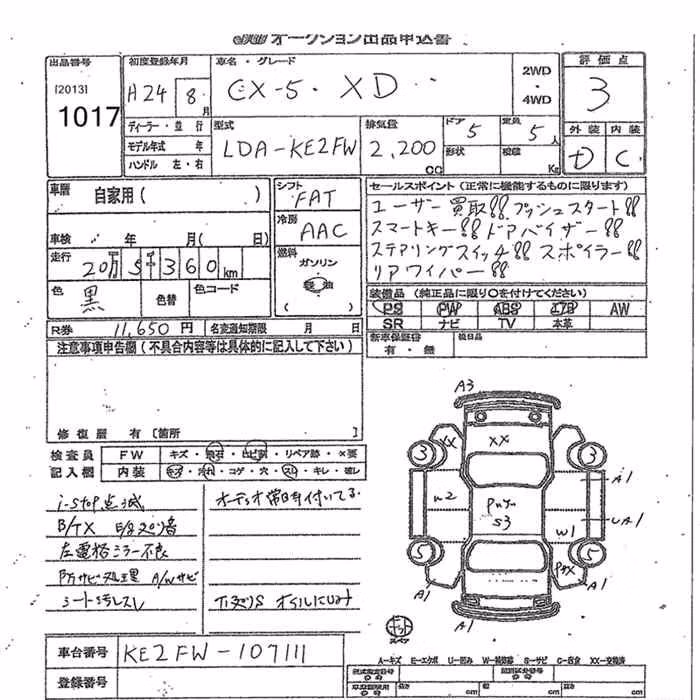 オークション出品申込書
出品番号
[2013]
1017
初度登録年月
H24 8月
車名・グレード
CX-5 XD
2WD
・
4WD
評価点
3
外装 内装
D C
ディーラー・並行
モデル年式 年
ハンドル 左・右
型式
LDA-KE2FW
排気量
2,200 cc
ドア 5
形状
定員 5人
積載 Kg
車歴 自家用( )
車検 年 月( 日)
走行 20万5千360km
色 黒
色替
色コード
シフト
FAT
冷房
AAC
燃料
ガソリン
軽油
セールスポイント(正常に機能するものに限ります)
ユーザー買取!! プッシュスタート!!
スマートキー!! ドアバイザー!!
ステアリングスイッチ!! スポイラー!!
リアワイパー!!
装備品(純正品に限り○を付けてください)
PS PW ABS エアB AW
SR ナビ TV 本革
新車保証書
有・無
後日品
R券 11,650円 名変通知期限 月 日
注意事項申告欄(不具合内容等は具体的に記入して下さい)
修復歴 有[箇所 ]
検査員 FW キズ・飛石・ヒビ割・リペア跡・×要
記入欄 内装 キズ・汚れ・コゲ・穴・スレ・キレ・破レ
i-stop点滅
B/TX
左電格ミラー不良
防サビ処理 A/Wサビ
シート汚レスレ
オーディオ 付いてる
下廻りS オイルにじみ
A3
XX
XX
3
3
A1
W2
S3
W1
UA1
5
5
A1
A1
A3
車台番号 KE2FW-107111
登録番号
A-キズ E-エクボ U-凹み W-補修跡 S-サビ C-腐食 XX-交換済